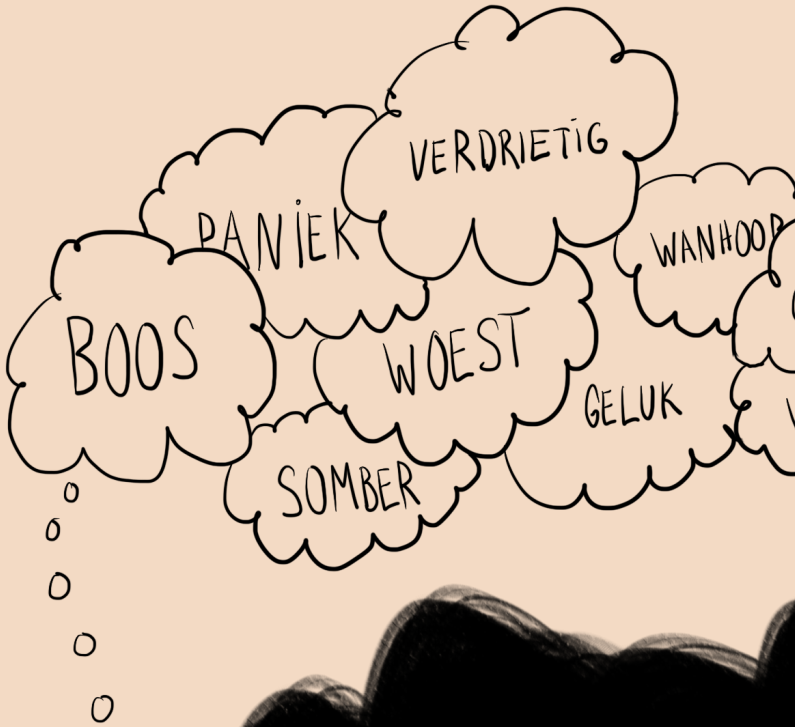 VERDRIETIG
PANIEK
WANHOOP
BOOS
WOEST
GELUK
SOMBER